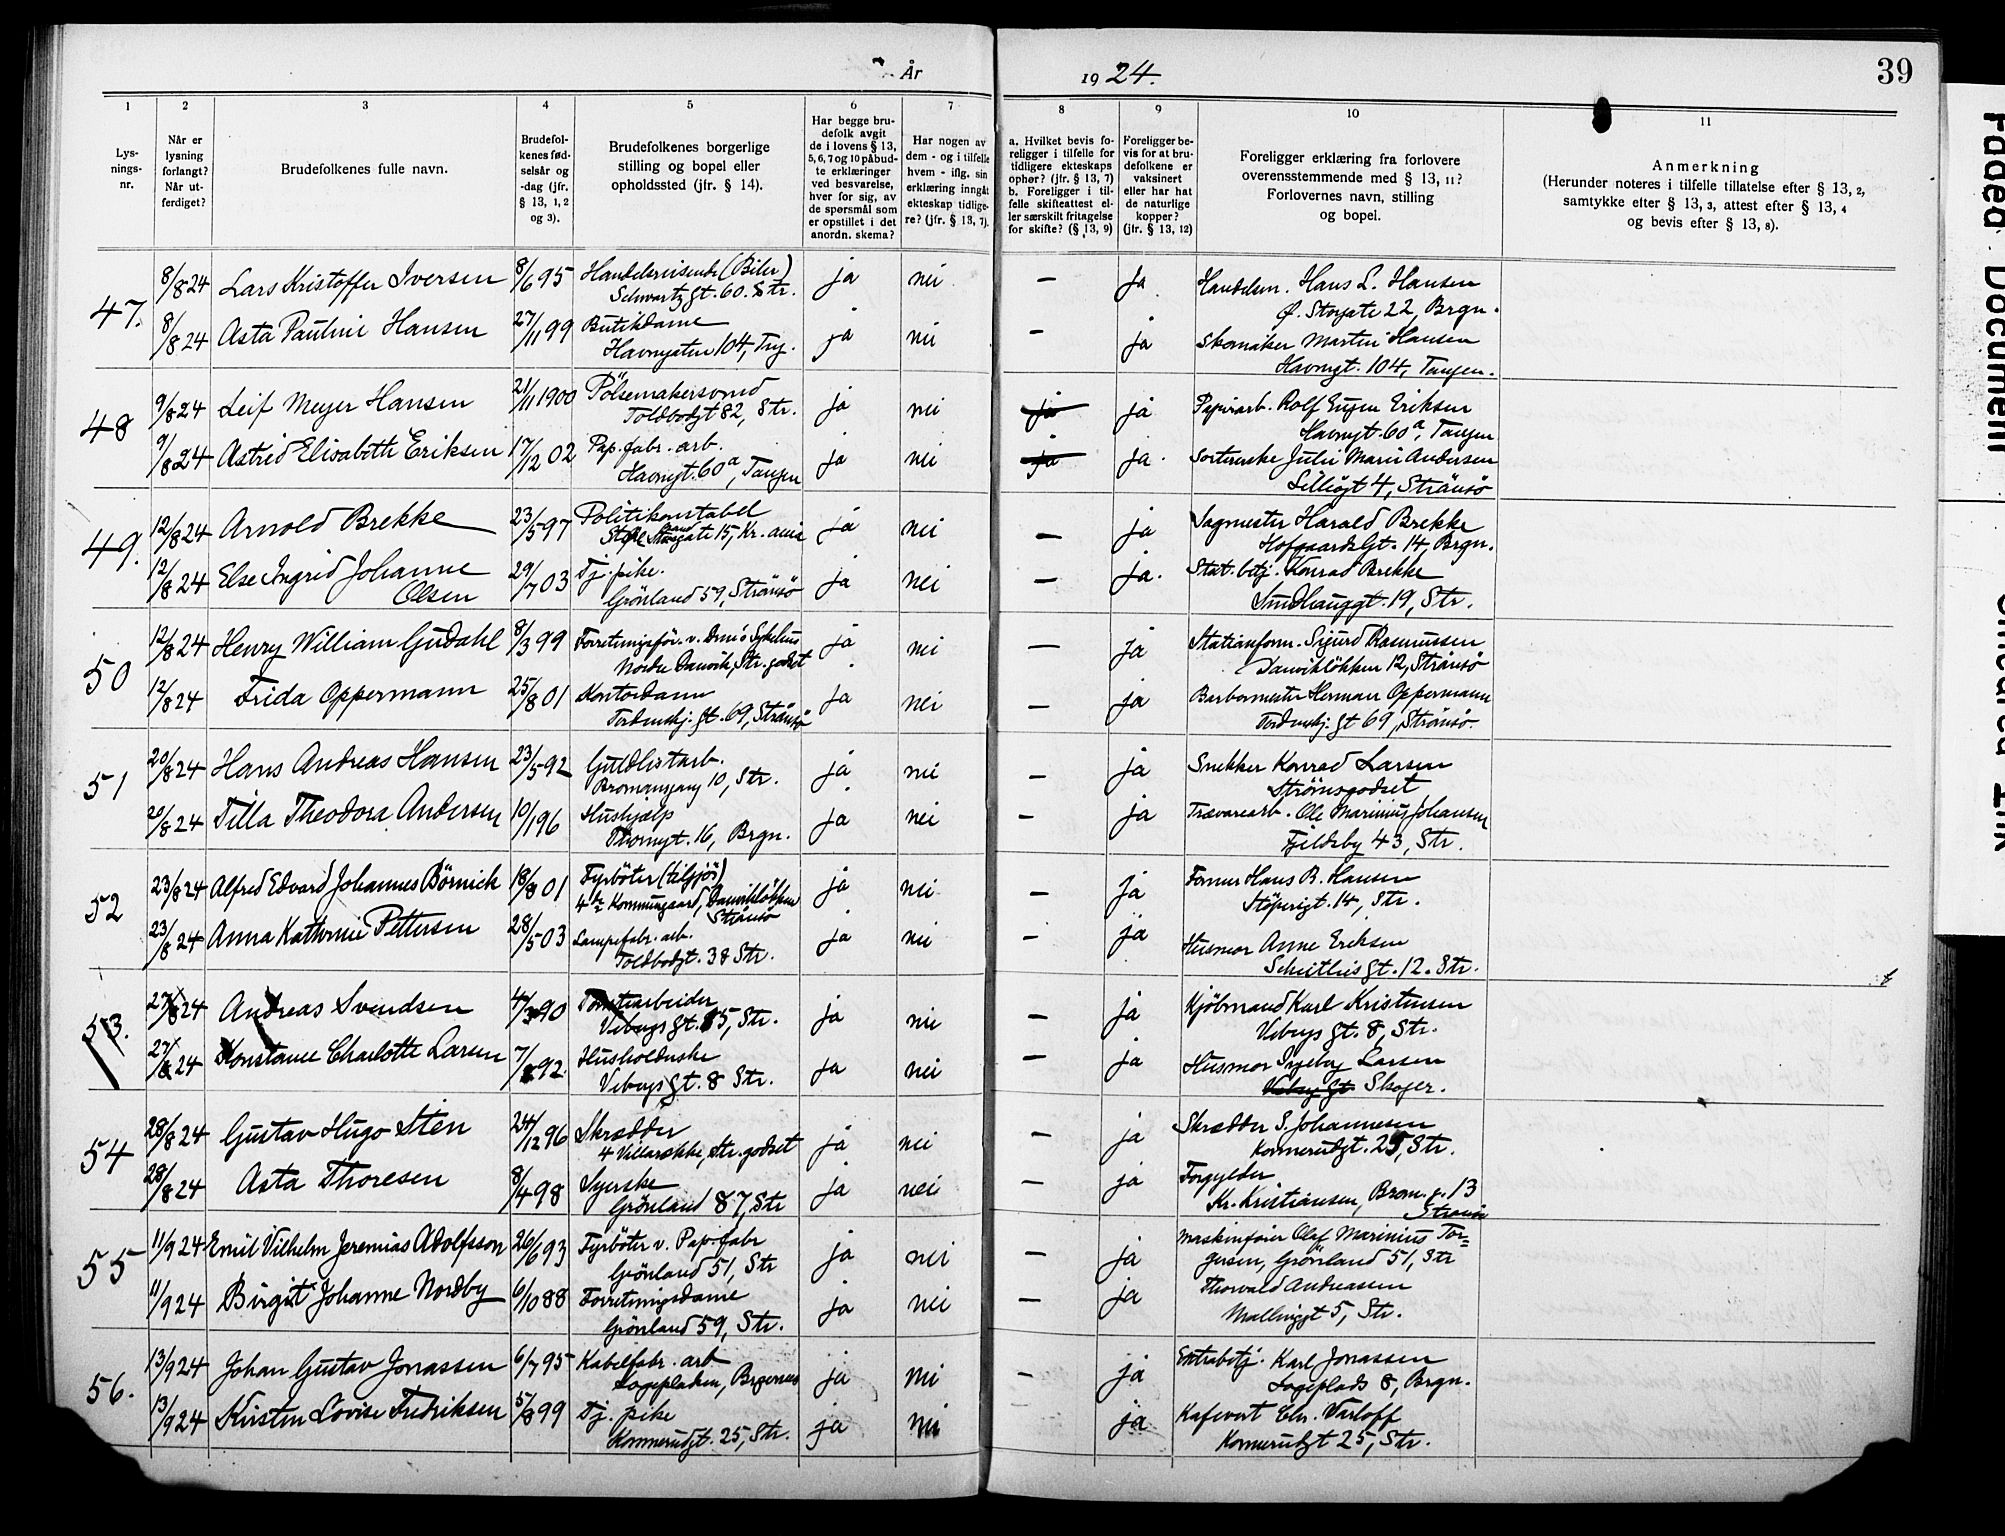 År
1924.
39
1
Lys-
nings-
nr.
2
Når er
lysning
forlangt?
Når ut-
ferdiget?
3
Brudefolkenes fulle navn.
4
Brudefol-
kenes fød-
selsår og
-dag (jfr.
§ 13, 1, 2
og 3).
5
Brudefolkenes borgerlige
stilling og bopel eller
opholdssted (jfr. § 14).
6
Har begge bru-
defolk avgit
de i lovens § 13,
5, 6, 7 og 10 påbud-
te erklæringer
ved besvarelse,
hver for sig, av
de spørsmål som
er opstillet i det
anordn. skema?
7
Har nogen av
dem - og i tilfelle
hvem - iflg. sin
erklæring inngåt
ekteskap tidlige-
re? (jfr. § 13, 7).
8
a. Hvilket bevis fo-
religger i tilfelle for
tidligere ekteskaps
ophør? (jfr. § 13, 7)
b. Foreligger i til-
felle skifteattest el-
ler særskilt fritagelse
for skifte? (§ 13, 9)
9
Foreligger be-
vis for at bru-
defolkene er
vaksinert
eller har hat
de naturlige
kopper?
(jfr. § 13, 12)
10
Foreligger erklæring fra forlovere
overensstemmende med § 13, 11?
Forlovernes navn, stilling
og bopel.
11
Anmerkning
(Herunder noteres i tilfelle tillatelse efter § 13, 2,
samtykke efter § 13, 3, attest efter § 13, 4
og bevis efter § 13, 8).
47.
8/8 24 Lars Kristoffer Iversen 8/6 95 Handelsreisende (Biler) ja nei — ja Handelsm. Hans L. Hansen
Schwartz gt. 60. Str. Ø. Storgate 22, Brgn.
8/8 24 Asta Pauline Hansen 27/11 99 Butikdame ja nei — ja Skomaker Martin Hansen
Havnegaten 104, Tng. Havnegt. 104, Tangen.
48
9/8 24 Leif Meyer Hansen 21/11 1900 Pölsemakersvend ja nei ja ja Papirarb. Rolf Eugen Eriksen
Toldbodgt 82, Str. Havnegt. 60a, Tangen
9/8 24 Astrid Elisabeth Eriksen 17/12 02 Pap. fabr. arb. ja nei ja ja. Sorterske Julie Marie Andersen
Havnegt. 60a, Tangen Lilliögt 4, Strömsö
49.
12/8 24 Arnold Brekke 23/5 97 Politikonstabel ja nei — ja Sagmester Harald Brekke
gate 15, Kr.ania Hofgaards Gt. 14, Brgn.
12/8 24 Else Ingrid Johanne 29/7 03 Tj. pike. ja nei — ja. Stat. betj. Konrad Brekke
Olsen Grönland 59, Strömsö Smedhauggt. 19, Str.
50
12/8 24 Henry William Gudahl 8/3 99 Forretningsför. v. Dm's Sykehus ja nei — ja Stationsform. Sigurd Rasmussen
Nordre Danvik, Str. godset Danvikløkken 12, Strömsö
12/8 24 Frida Oppermann 25/8 01 Kontordame ja nei — ja Barbermester Herman Oppermann
Tordenskj. gt. 69, Strömsö Tordenskj. gt 69, Strömsö.
51
20/8 24 Hans Andreas Hansen 23/5 92 Guldlistarb. ja nei — ja Snekker Konrad Larsen
Bromansgang 10, Str. Strömsgodset
20/8 24 Tilla Theodora Andersen 10/1 96 Hushjælp ja nei — ja Trævarearb. Ole Marinius Johansen
Thornegt. 16, Brgn. Fjeldsby 43, Str.
52
23/8 24 Alfred Edvard Johannes Börnick 18/8 01 Fyrböter (tilsjös) ja nei — ja Former Hans B. Hansen
4de Kommunegaard, Danvikløkken Støperigt. 14, Str.
Strömsö
23/8 24 Anna Katherine Pettersen 28/5 03 Lampefabr. arb. ja nei — ja Husmor Anne Eriksen
Toldbodgt. 38 Str. Schultheis gt. 12. Str.
53.
27/8 24 Andreas Svendsen 4/3 90 Tomtearbeider ja nei — ja Kjöbmand Karl Kristensen
Vebergs gt. 85, Str. Vebergs gt. 8, Str.
27/8 24 Konstance Charlotte Larsen 7/8 92. Husholderske ja nei — ja Husmor Ingeborg Larsen
Vebergs gt. 8 Str. Skoger.
54
28/8 24 Gustav Hugo Sten 24/12 96 Skrædder ja nei — ja Skrædder S. Johannesen
4 Villarække, Str. godset Konnerudgt. 25, Str.
28/8 24 Asta Thoresen 8/4 98 Syerske ja nei — ja Forgylder
Grönland 87, Str Kr. Kristiansen, Brom. g. 13
Strömsö
55
11/9 24 Emil Vilhelm Jeremias Adolfsson 26/6 93 Fyrböter v. Papfabr ja nei — ja Maskinfører Olaf Marinius Tor-
Grönland 51, Str gersen, Grönland 51, Str
11/9 24 Birgit Johanne Nordby 6/10 88 Forretningsdame ja nei — ja Thorvald Andreassen
Grönland 59, Str. Mallinggt 5, Str.
56.
13/9 24 Johan Gustav Jonassen 6/7 95 Kabelfabr. arb ja nei — ja Extrabetj. Karl Jonassen
Løgeplatsen, Bragernes Løgeplads 8, Brgn.
13/9 24 Kirsten Lovise Fredriksen 5/8 99 Tj. pike ja nei ja Kafevert Chr. Varloff
Konnerudgt. 25, Str. Konnerudgt 25, Str.
Faded Document